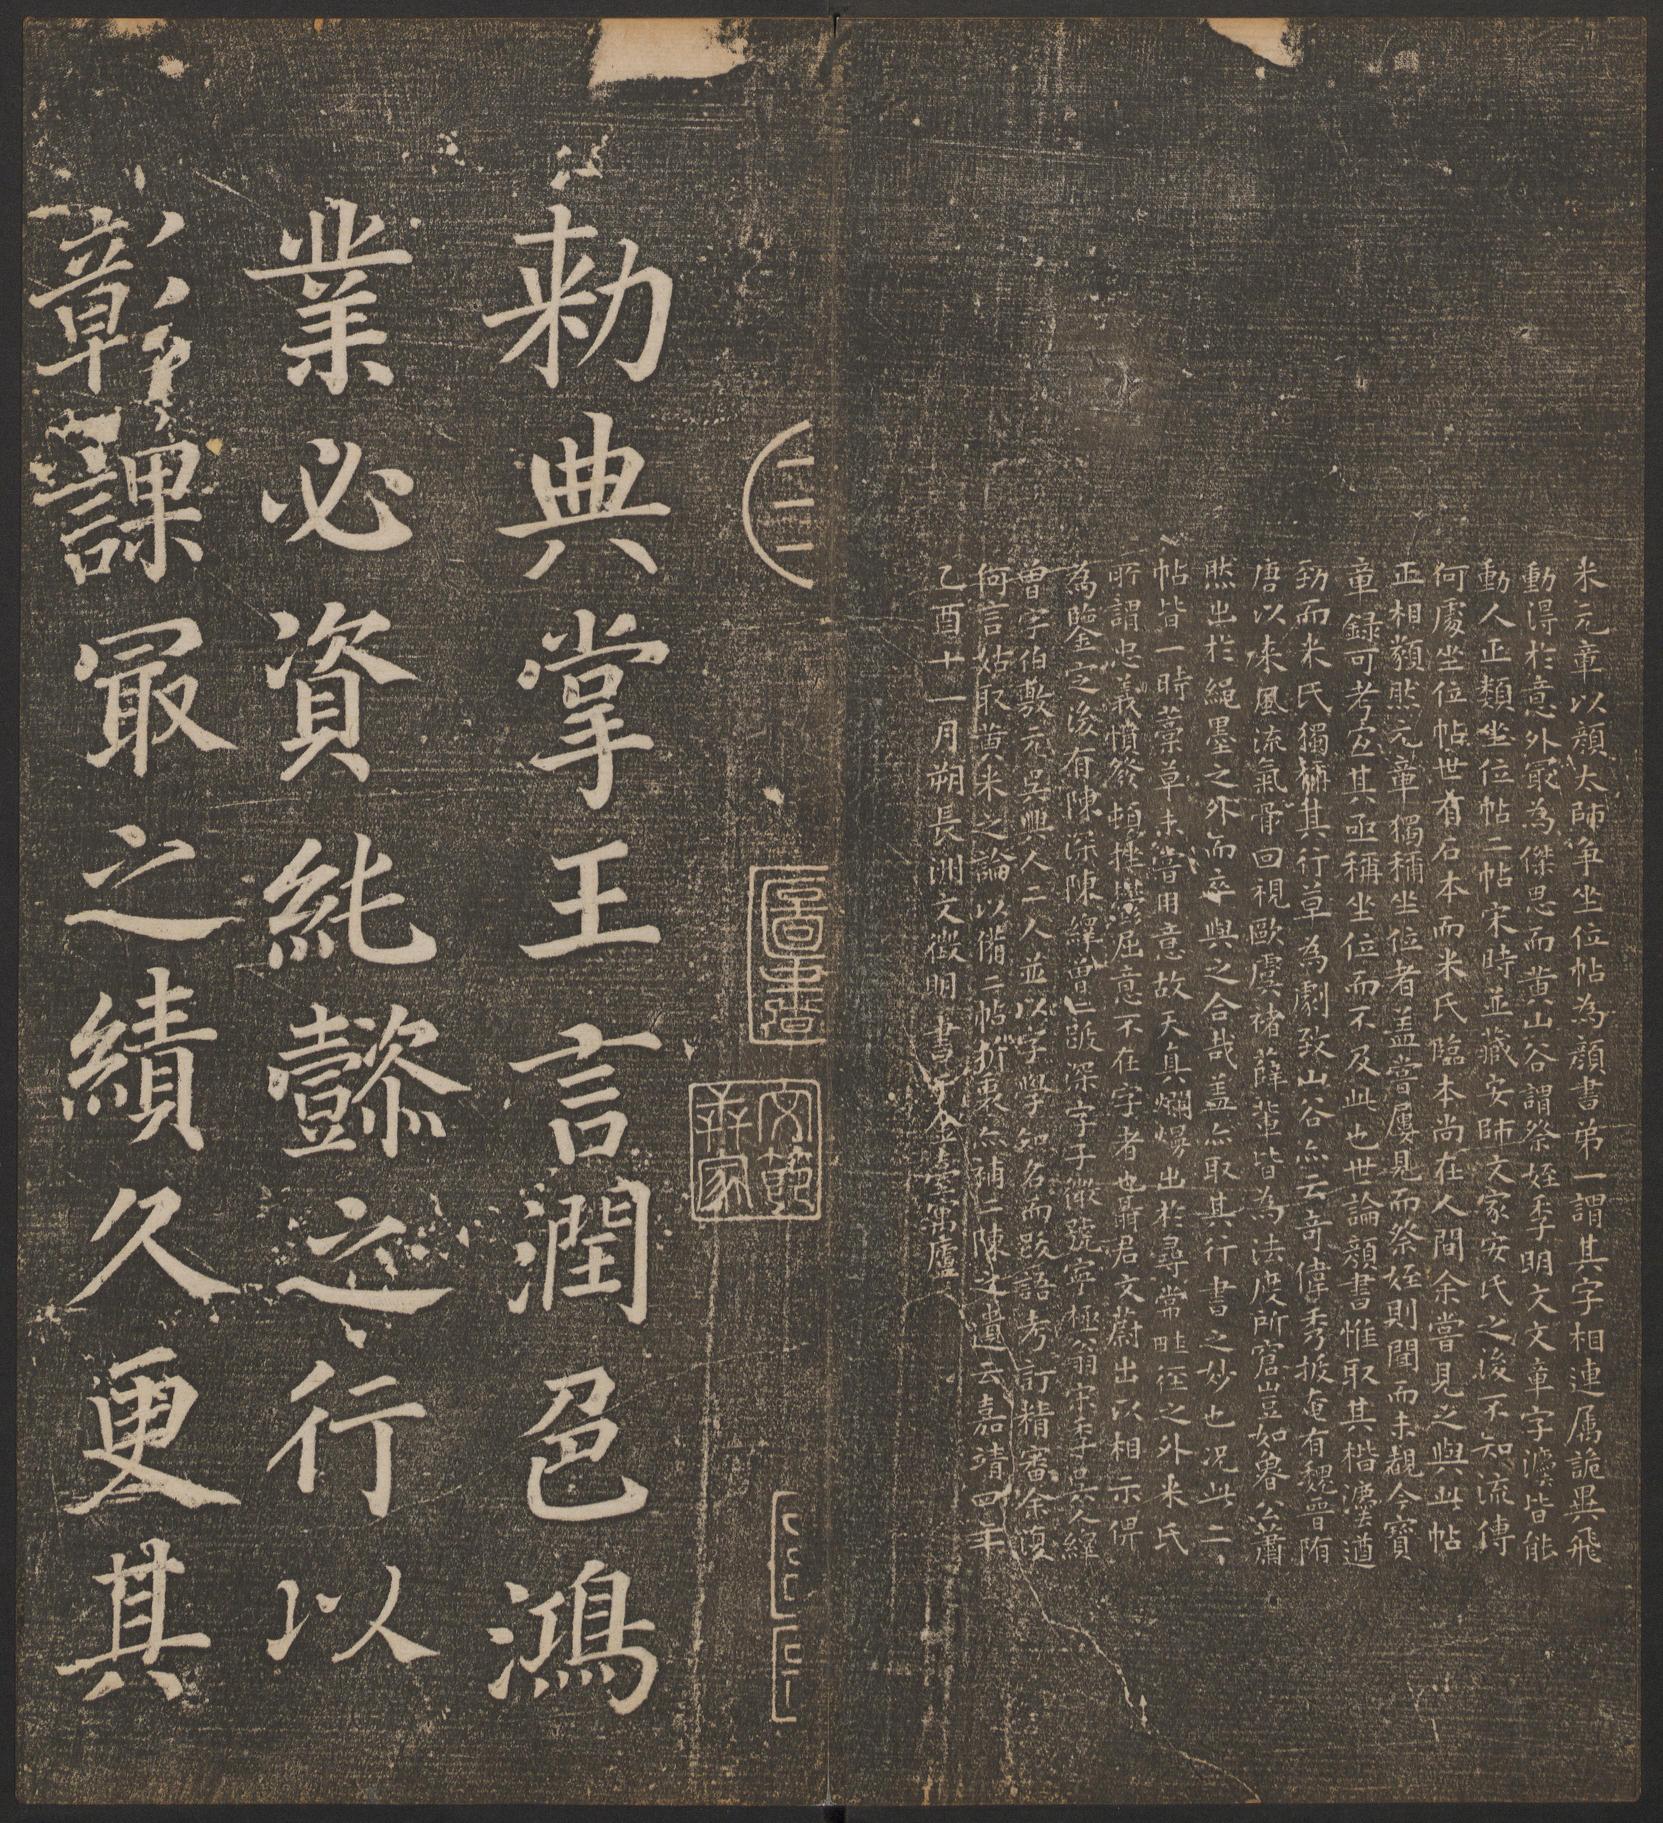 米元章以顏太師爭坐位帖為顏書弟一謂其字相連屬詭異飛
動得於意外冣為傑思而黃山谷謂祭姪季明文文章字灋皆能
動人正類坐位帖二帖宋時並藏安師文家安氏之後不知流傳
何處坐位帖世有石本而米氏臨本尚在人間余嘗見之與此帖
正相類然元章獨稱坐位者盖嘗屢見而祭姪則聞而未覩今寶
章錄可考宜其亟稱坐位而不及此也世論顏書惟取其楷灋遒
勁而米氏獨稱其行草為劇致山谷亦云奇偉秀拔奄有魏晉隋
唐以來風流氣骨回視歐虞褚薛輩皆為法度所窘豈如魯公蕭
然出於繩墨之外而卒與之合哉盖亦取其行書之妙也況此二
帖皆一時藁草未嘗用意故天真爛熳出於尋常畦徑之外米氏
所謂忠義憤發頓挫鬱屈意不在字者也聶君文蔚出以相示俾
為鑒定之後有陳深陳繹曾二跋深字子微號寧極翁宋季吳人繹
曾字伯敷元吳興人二人並以字學知名而跋語考訂精審余復
何言姑取黃米之論以備二帖折衷亦補二陳之遺云嘉靖四年
乙酉十一月朔長洲文徵明書于金臺寓廬
勑典掌王言潤色鴻
業必資純懿之行以
彰課冣之績久更其